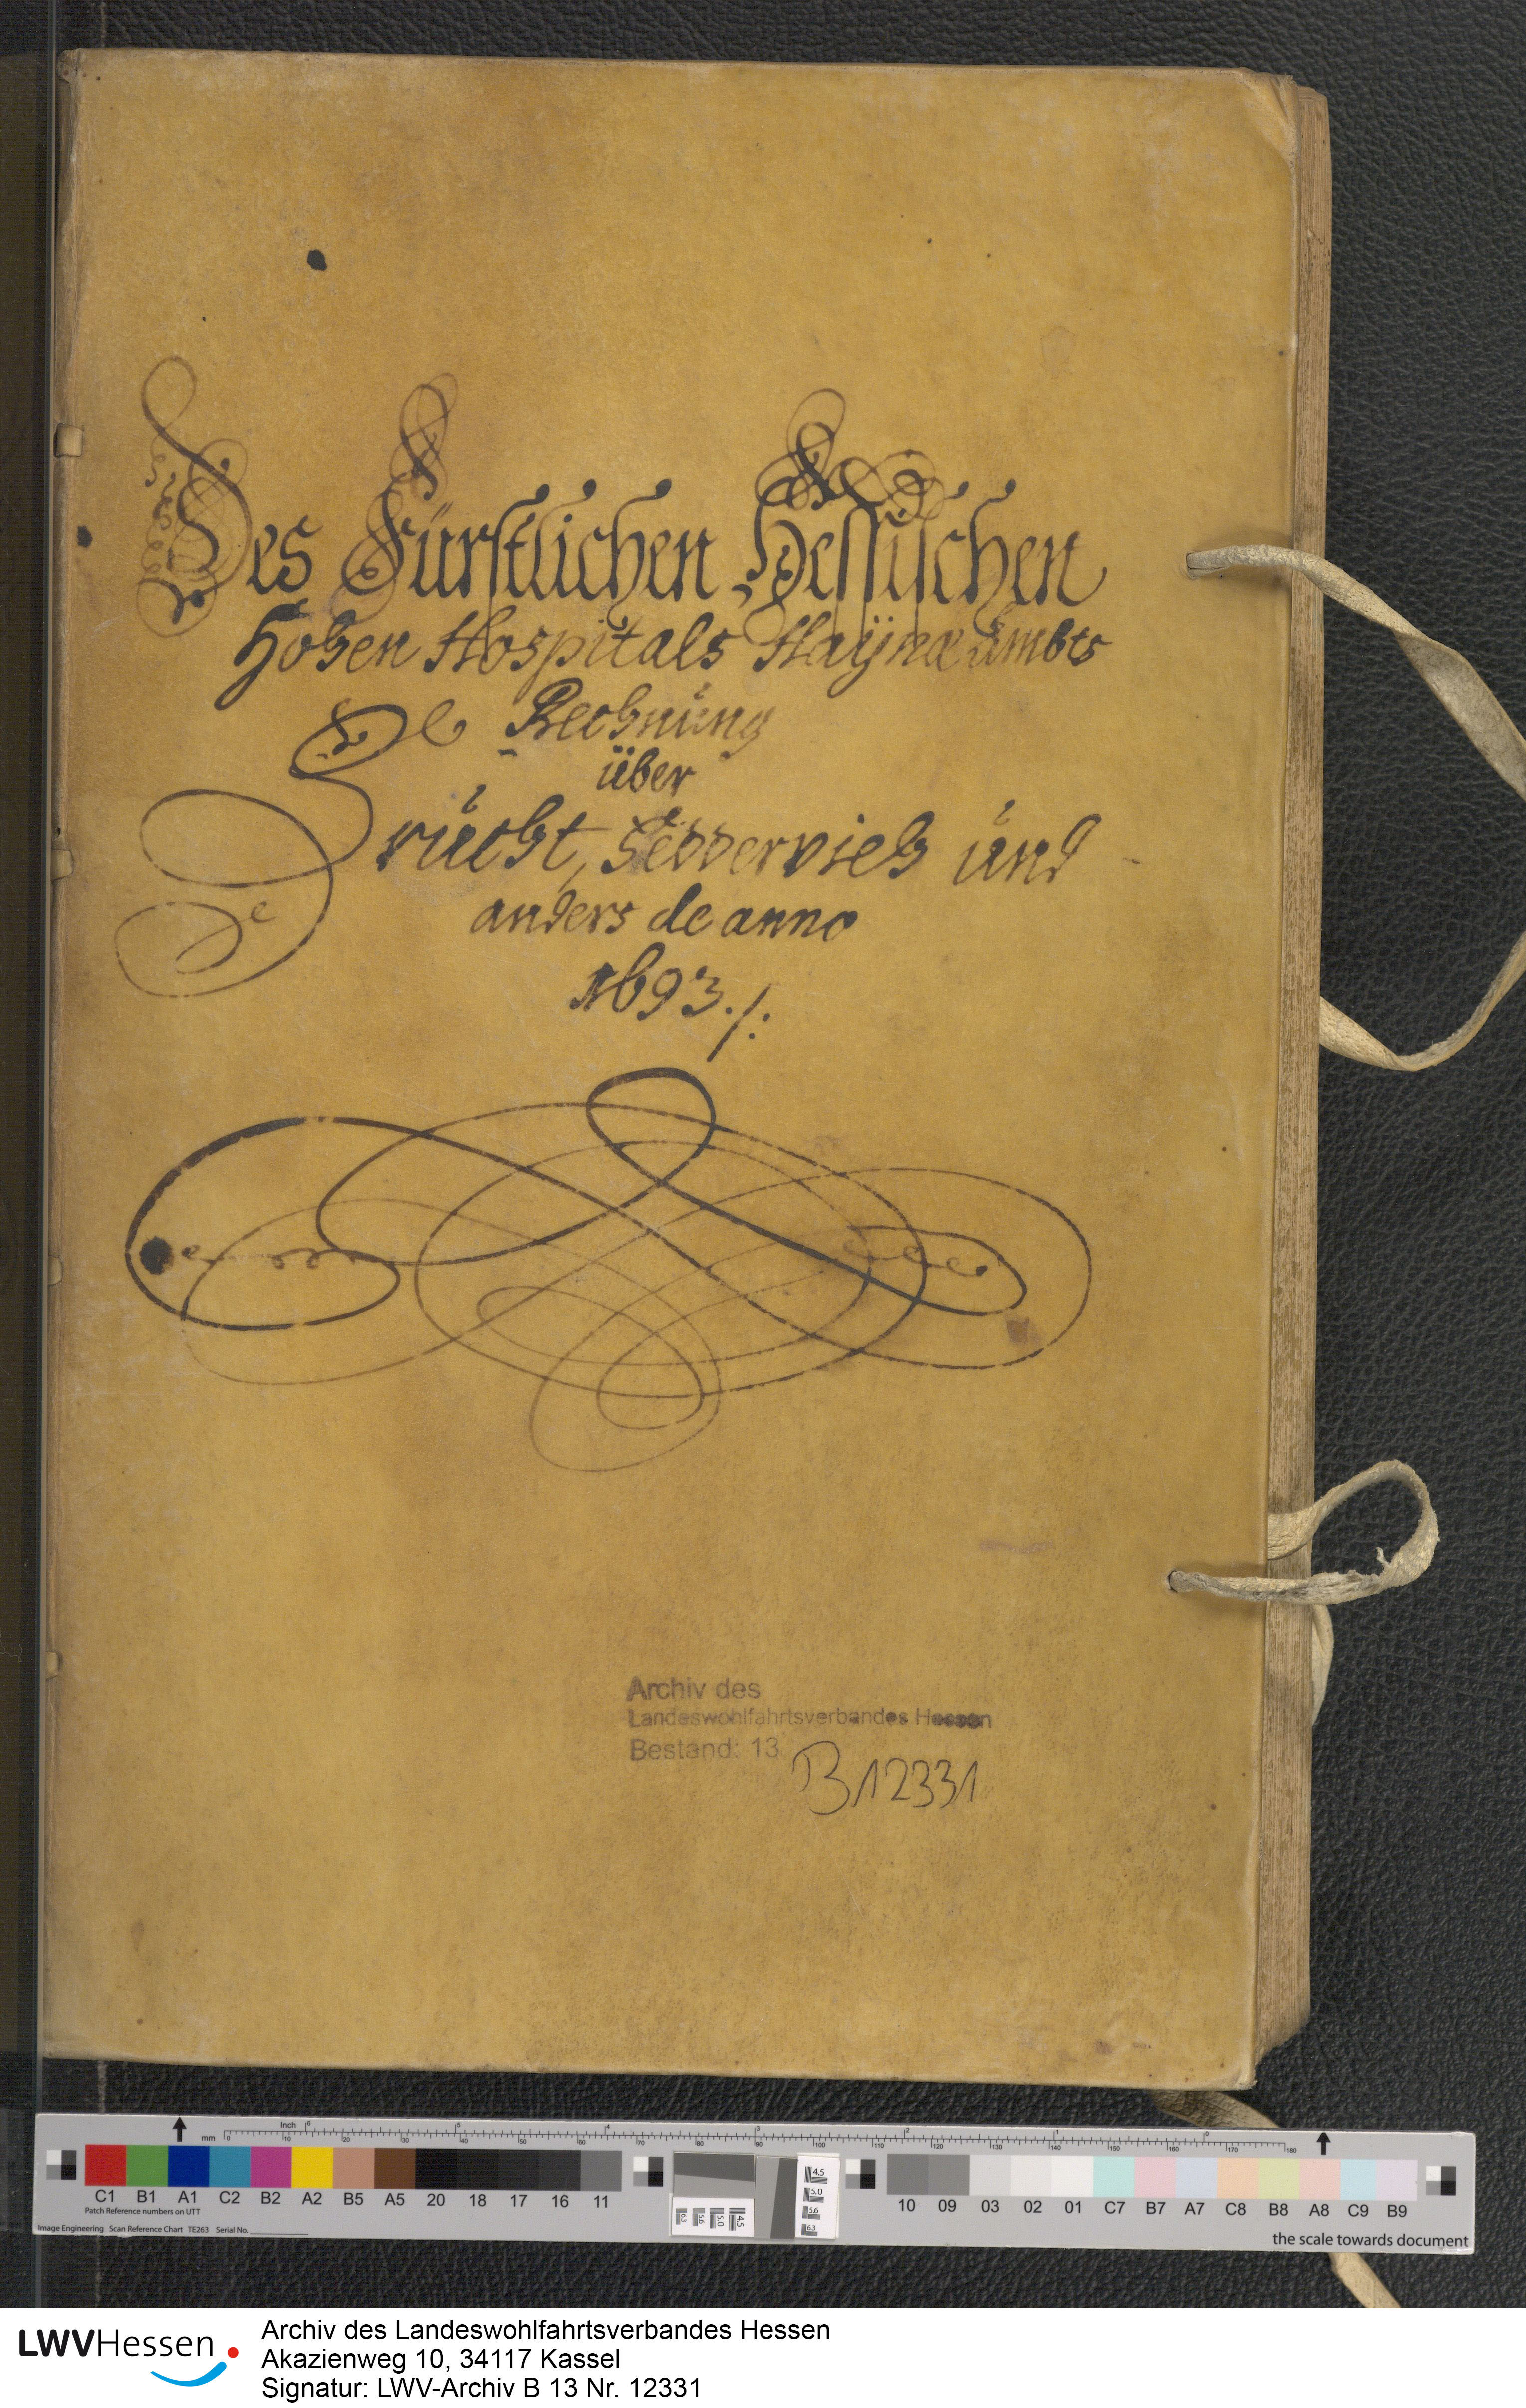 Des Fürstlichen Hessischen
Hohen Hospitals Haÿna ambts
Rechnüng
über
Frücht, Feddervieh ünd
anders de anno
1693./.
Archiv des
Landeswohlfahrtsverbandes Hessen
Bestand: 13
B 12331
Inch
mm
C1 B1 A1 C2 B2 A2 B5 A5 20 18 17 16 11
10 09 03 02 01 C7 B7 A7 C8 B8 A8 C9 B9
Patch Reference numbers on UTT
Image Engineering Scan Reference Chart TE263 Serial No.
the scale towards document
LWVHessen
Archiv des Landeswohlfahrtsverbandes Hessen
Akazienweg 10, 34117 Kassel
Signatur: LWV-Archiv B 13 Nr. 12331